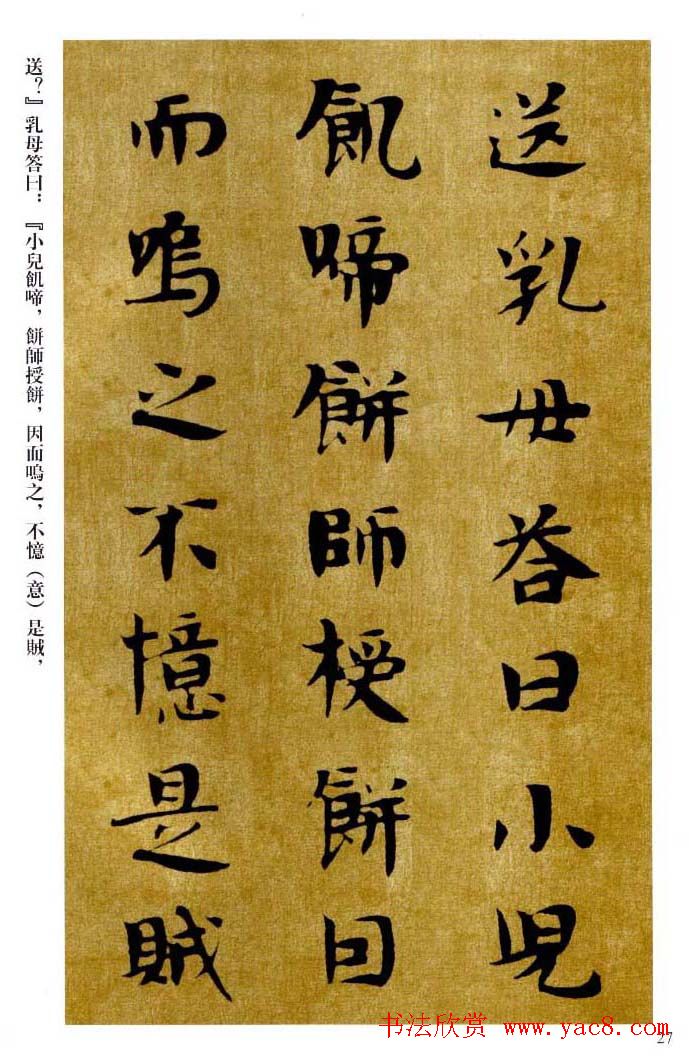 送乳母答曰小兒
飢啼餅師授餅因
而嗚之不憶是賊
送？』乳母答曰：『小兒飢啼，餅師授餅，因而嗚之，不憶（意）是賊，
书法欣赏 www.yac8.com
27